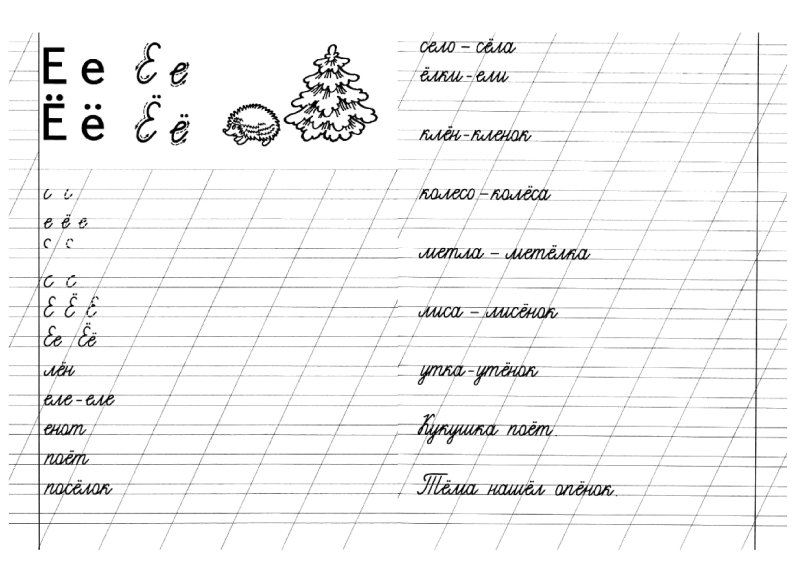 Е е Е е
Ё ё Ё ё
е ё е
с с
Е Ё Е
Ее Ёё
лён
еле - еле
енот
поёт
посёлок
село – сёла
ёлки - ели
клён - кленок
колесо – колёса
метла – метёлка
лиса – лисёнок
утка - утёнок
Кукушка поёт.
Тёма нашёл опёнок.